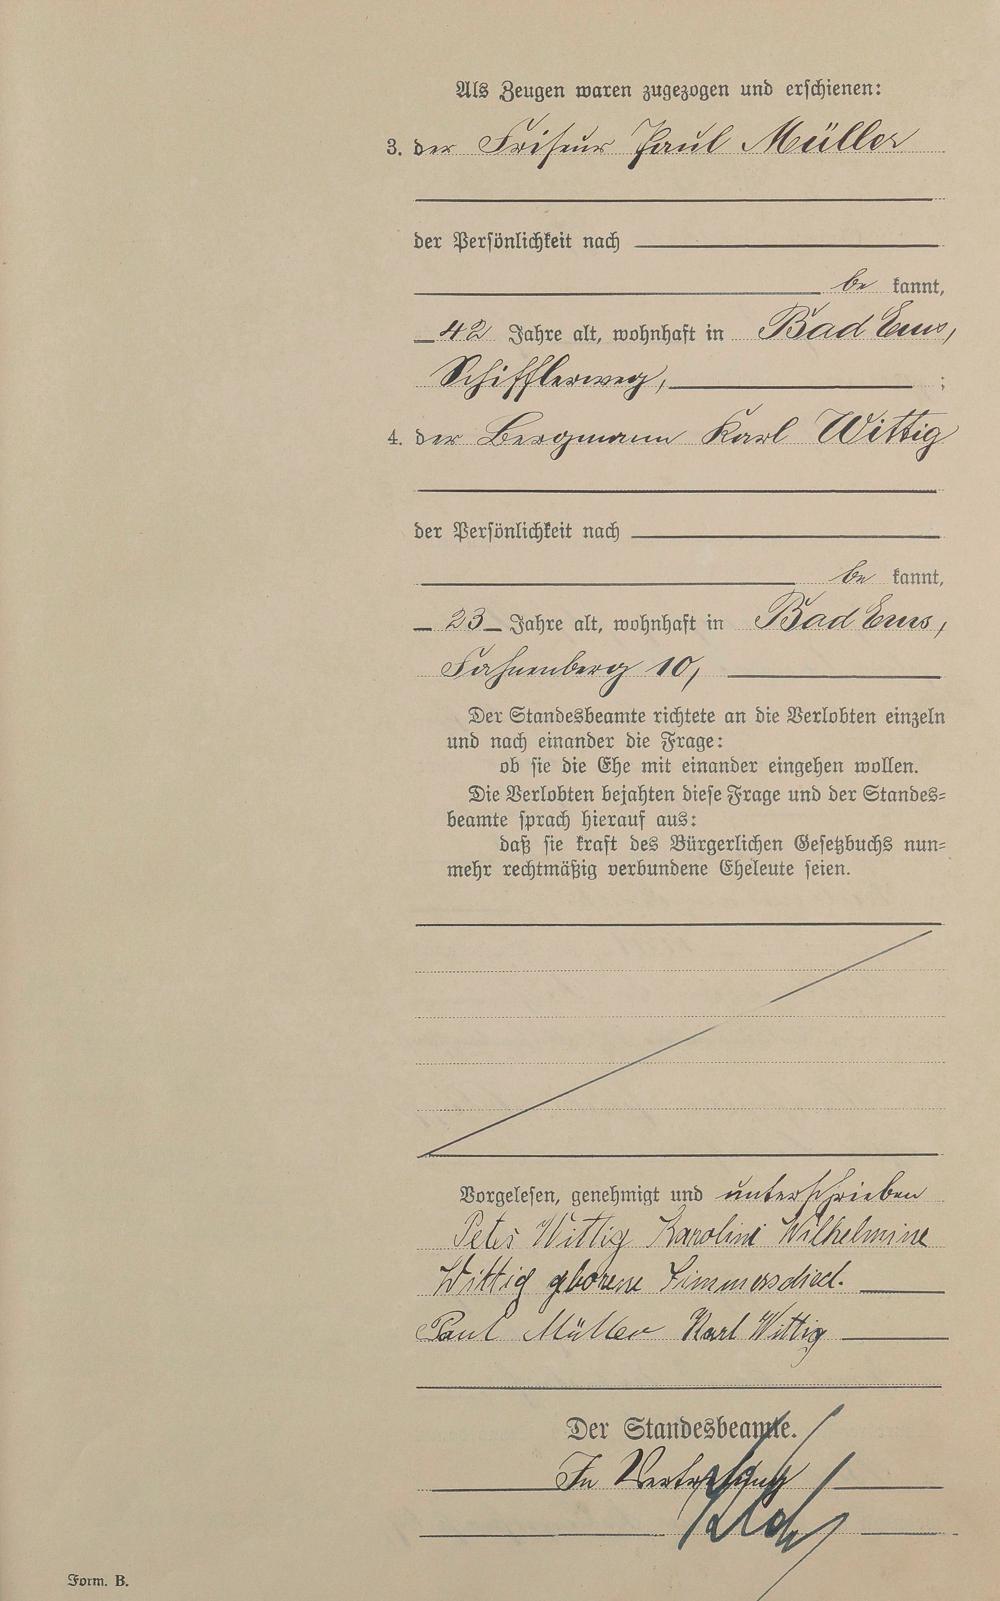 Als Zeugen waren zugezogen und erschienen:
3. der Friseur Paul Müller
der Persönlichkeit nach
be kannt,
42 Jahre alt, wohnhaft in Bad Ems,
Schifflerweg, ;
4. der Bergmann Karl Wittig
der Persönlichkeit nach
be kannt,
23 Jahre alt, wohnhaft in Bad Ems,
Fahnenberg 10,
Der Standesbeamte richtete an die Verlobten einzeln
und nach einander die Frage:
ob sie die Ehe mit einander eingehen wollen.
Die Verlobten bejahten diese Frage und der Standes-
beamte sprach hierauf aus:
daß sie kraft des Bürgerlichen Gesetzbuchs nun-
mehr rechtmäßig verbundene Eheleute seien.
Vorgelesen, genehmigt und unterschrieben
Peter Wittig Karoline Wilhelmine
Wittig geborene
Paul Müller Karl Wittig
Der Standesbeamte.
In Vertretung
Form. B.